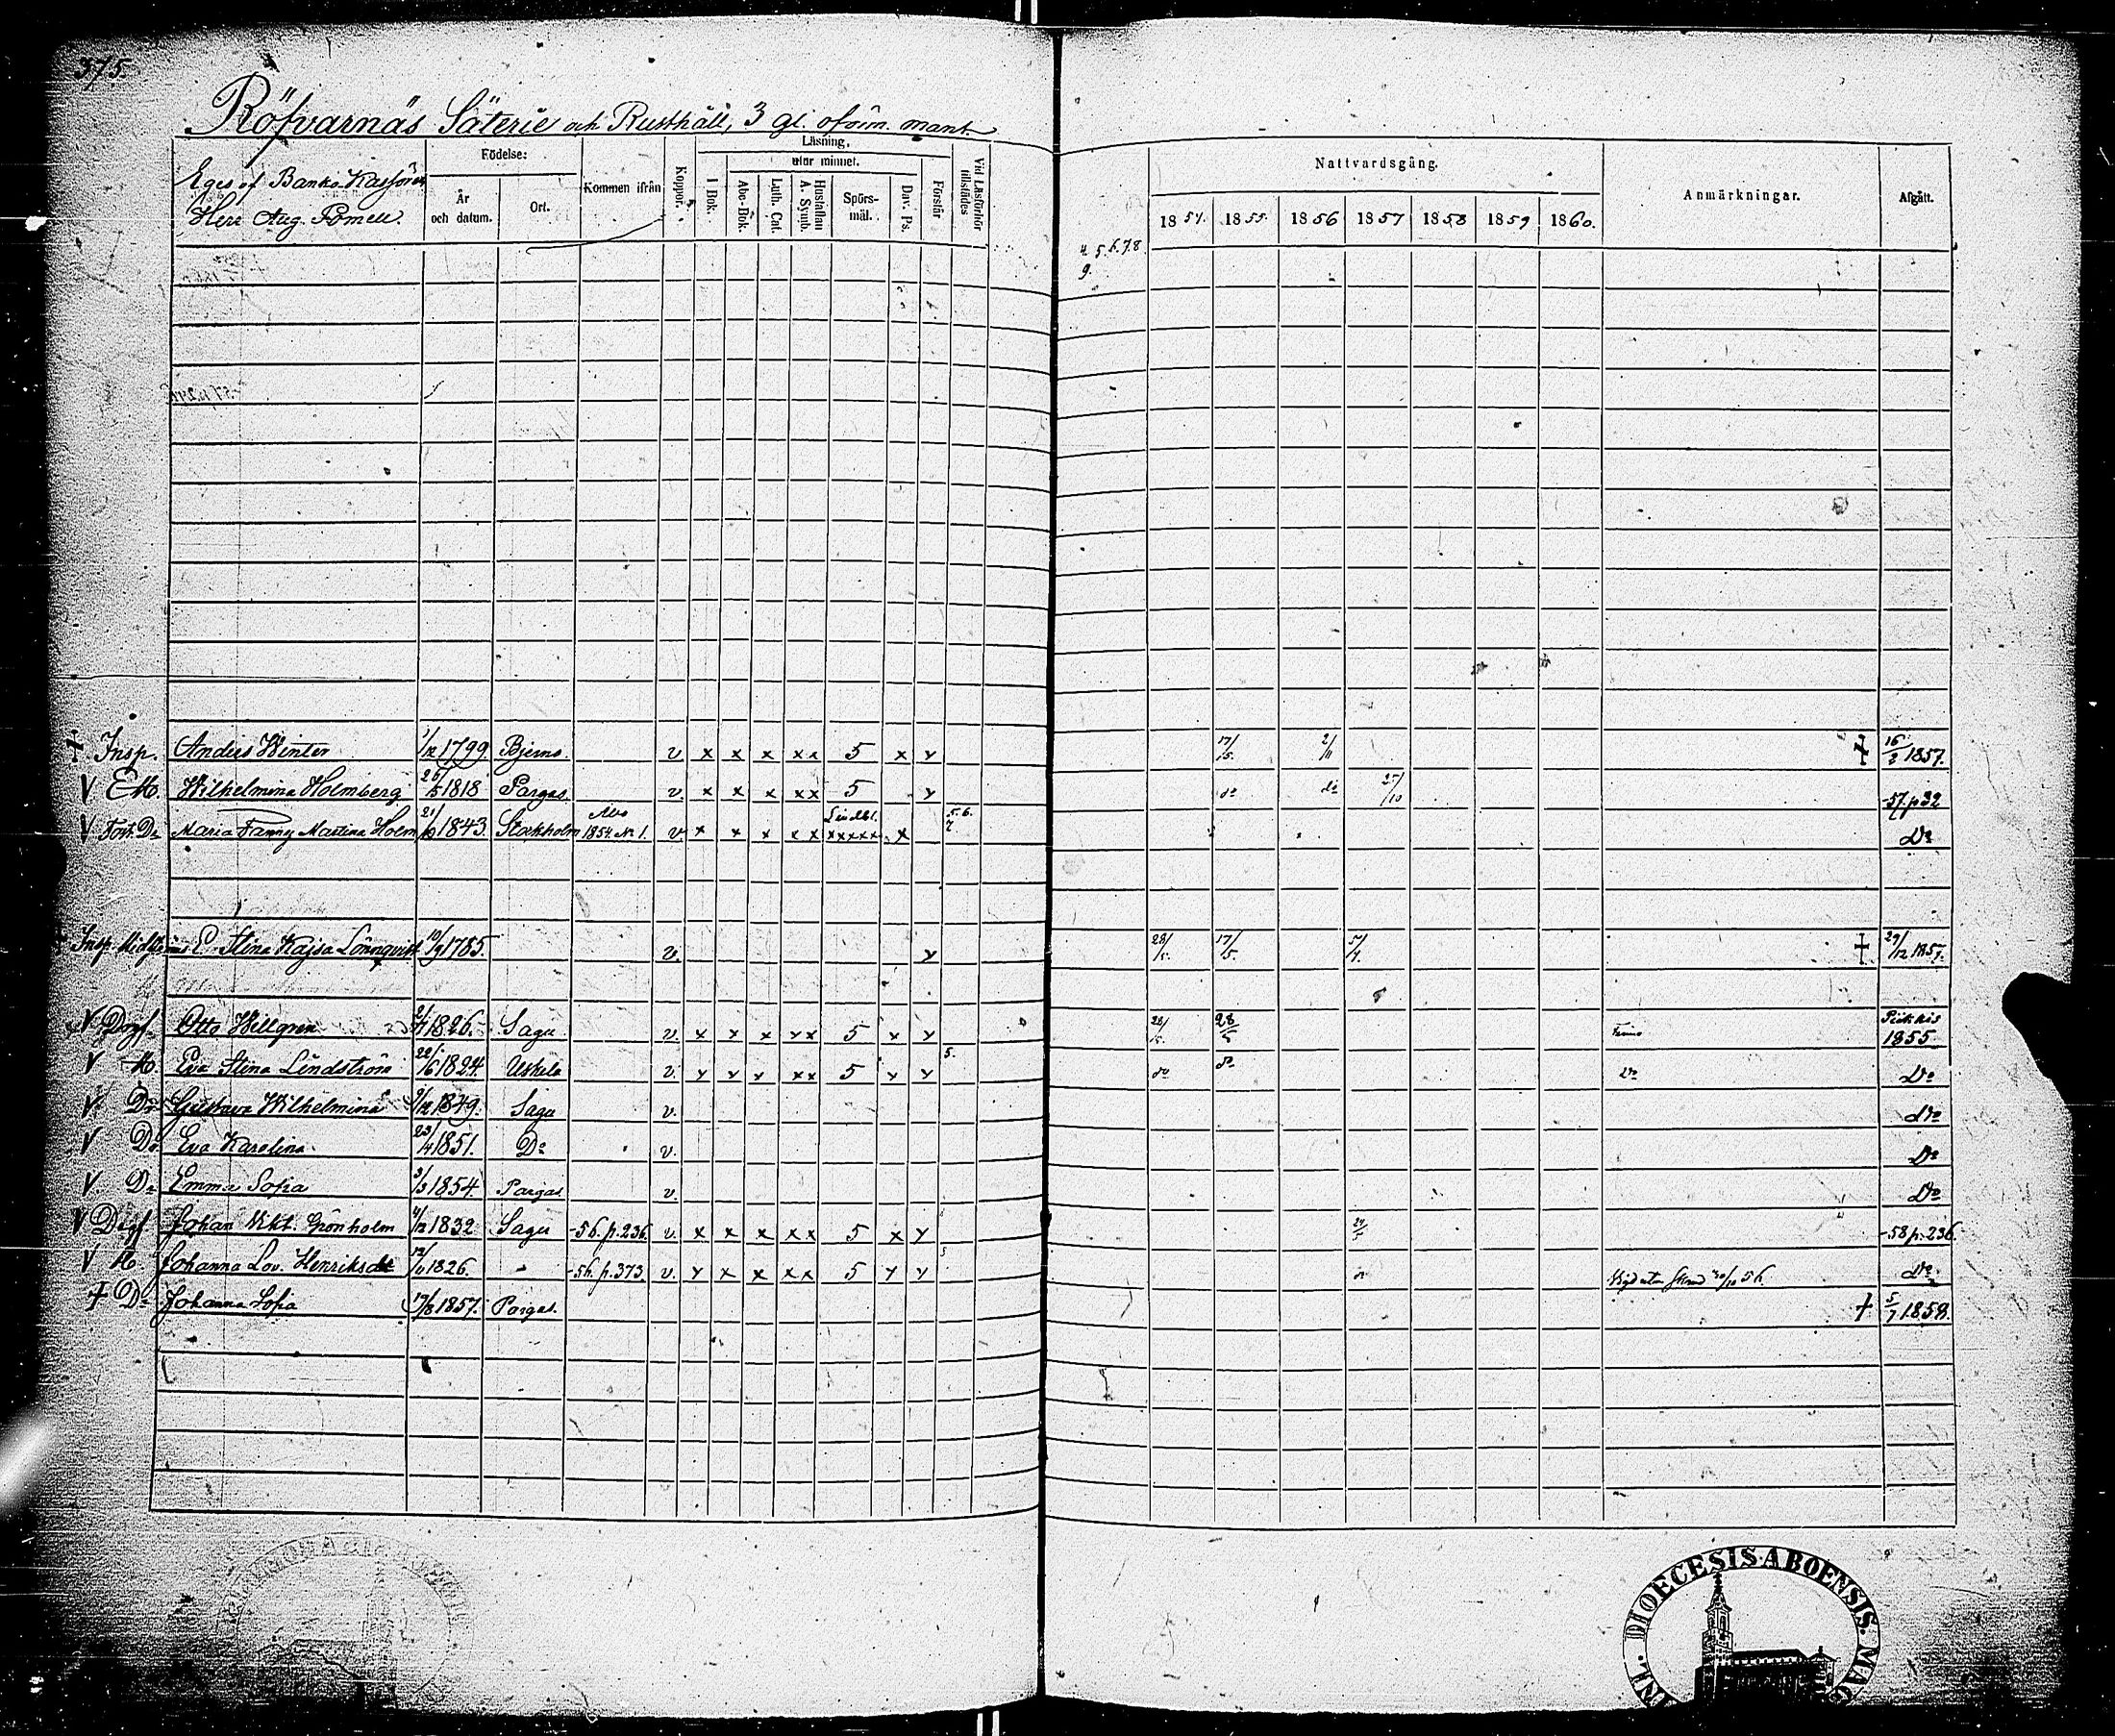 375.
Röfvarnäs Säterie och Rusthåll, 3 gl. oförm. mant.
Eges af Banko-Kassören
Herr Aug.
Födelse:
År och datum.
Ort.
Kommen ifrån
Koppor.
Läsning.
utur minnet.
I Bok.
Abc-Bok.
Luth. Cat.
Hustaflan A. Symb.
Spörs-mål.
Dav. Ps.
Förstår
Vid Läsförhör tillstädes
4. 5. 6. 7. 8.
9.
Nattvardsgång.
1854. 1855. 1856 1857 1858 1859 1860.
Anmärkningar.
Afgått.
+ Insp. Anders Winter 1/12 1799. Bjerno v x x x x x 5 x x 17/5. 2/11 + 16/2 1857.
V E. H. Wilhelmina Holmberg 26/ 1818 Pargas v. x x x x x 5 x do do 25/10 -57. p 32
V Fost. Dr Maria Fanny Martina Holm 21/ 1843. Stockholm Åbo 1854 No 1. v x x x x x xxxxx x 5. 6. 7 Do
Insp. E. Stina Kajsa Lönnqvist 10/9 1785. v. x 28/5. 17/5. /4. + 29/12 1857.
V Dogf. Otto Willgren 2/ 1826. Sagu v. x x x x x 5 x x 28/5. 28/5 Piikkis 1855.
V H. Eva Stina Lindström 22/6 1824. Uskela v. x x x x x 5 x x 5. do do Do Do
V. Dr Gustava Wilhelmina 9/12 1849. Sagu v. Do
V Dr Eva Karolina 23/4 1851. Do v. Do
V. Dr Emma Sofia 3/3 1854. Pargas v. Do
V Dogf Johan Vikt. Grönholm 4/12 1832 Sagu -56. p. 236. v. x x x x x 5 x x 24/5 -58 p. 236.
V H. Johanna Lov. Henriksdr 12/ 1826. -56. p. 373. v. x x x x x 5 x x 5 Vigd 56. Do
+ Dr Johanna Sofia 17/8 1857. Pargas. + 5/7 1858.
DIOECESIS. ABOENSIS. MAG